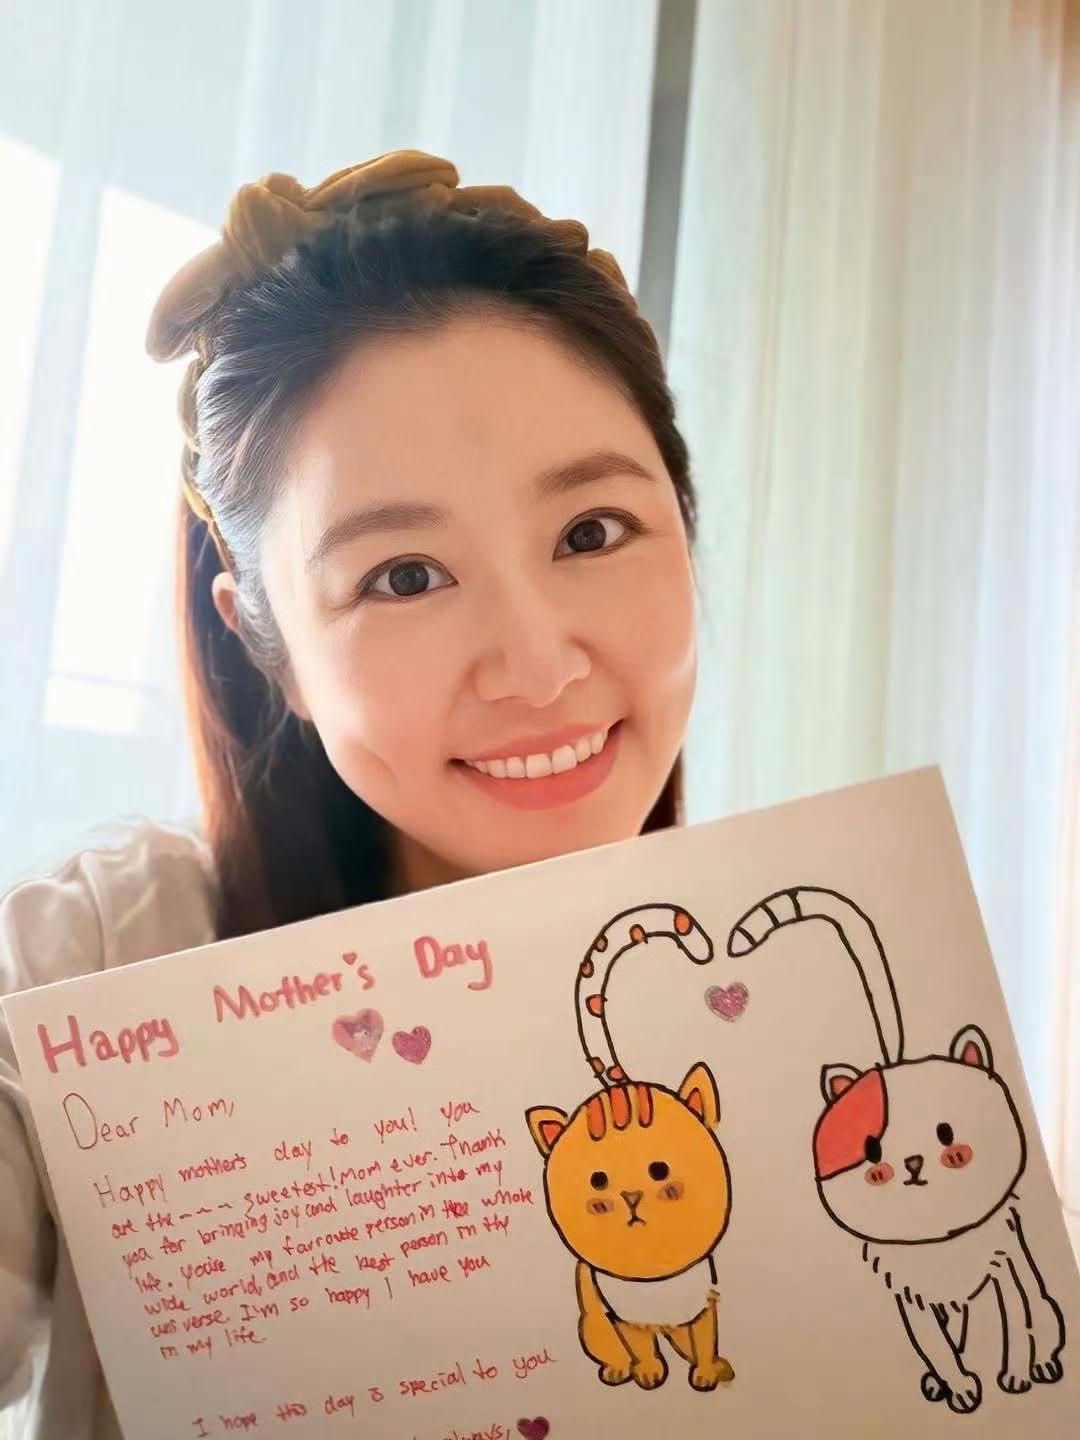 Happy Mother's Day
Dear Mom,
Happy mother's day to you! you
are the --~~ sweetest! Mom ever. Thank
you for bringing joy and laughter into my
life. you're my favroute person in the whole
wide world, and the best person in thy
universe. I'm so happy I have you
in my life.
I hope this day is special to you
always,